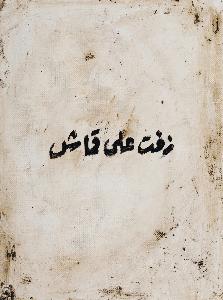 زفت على قماش